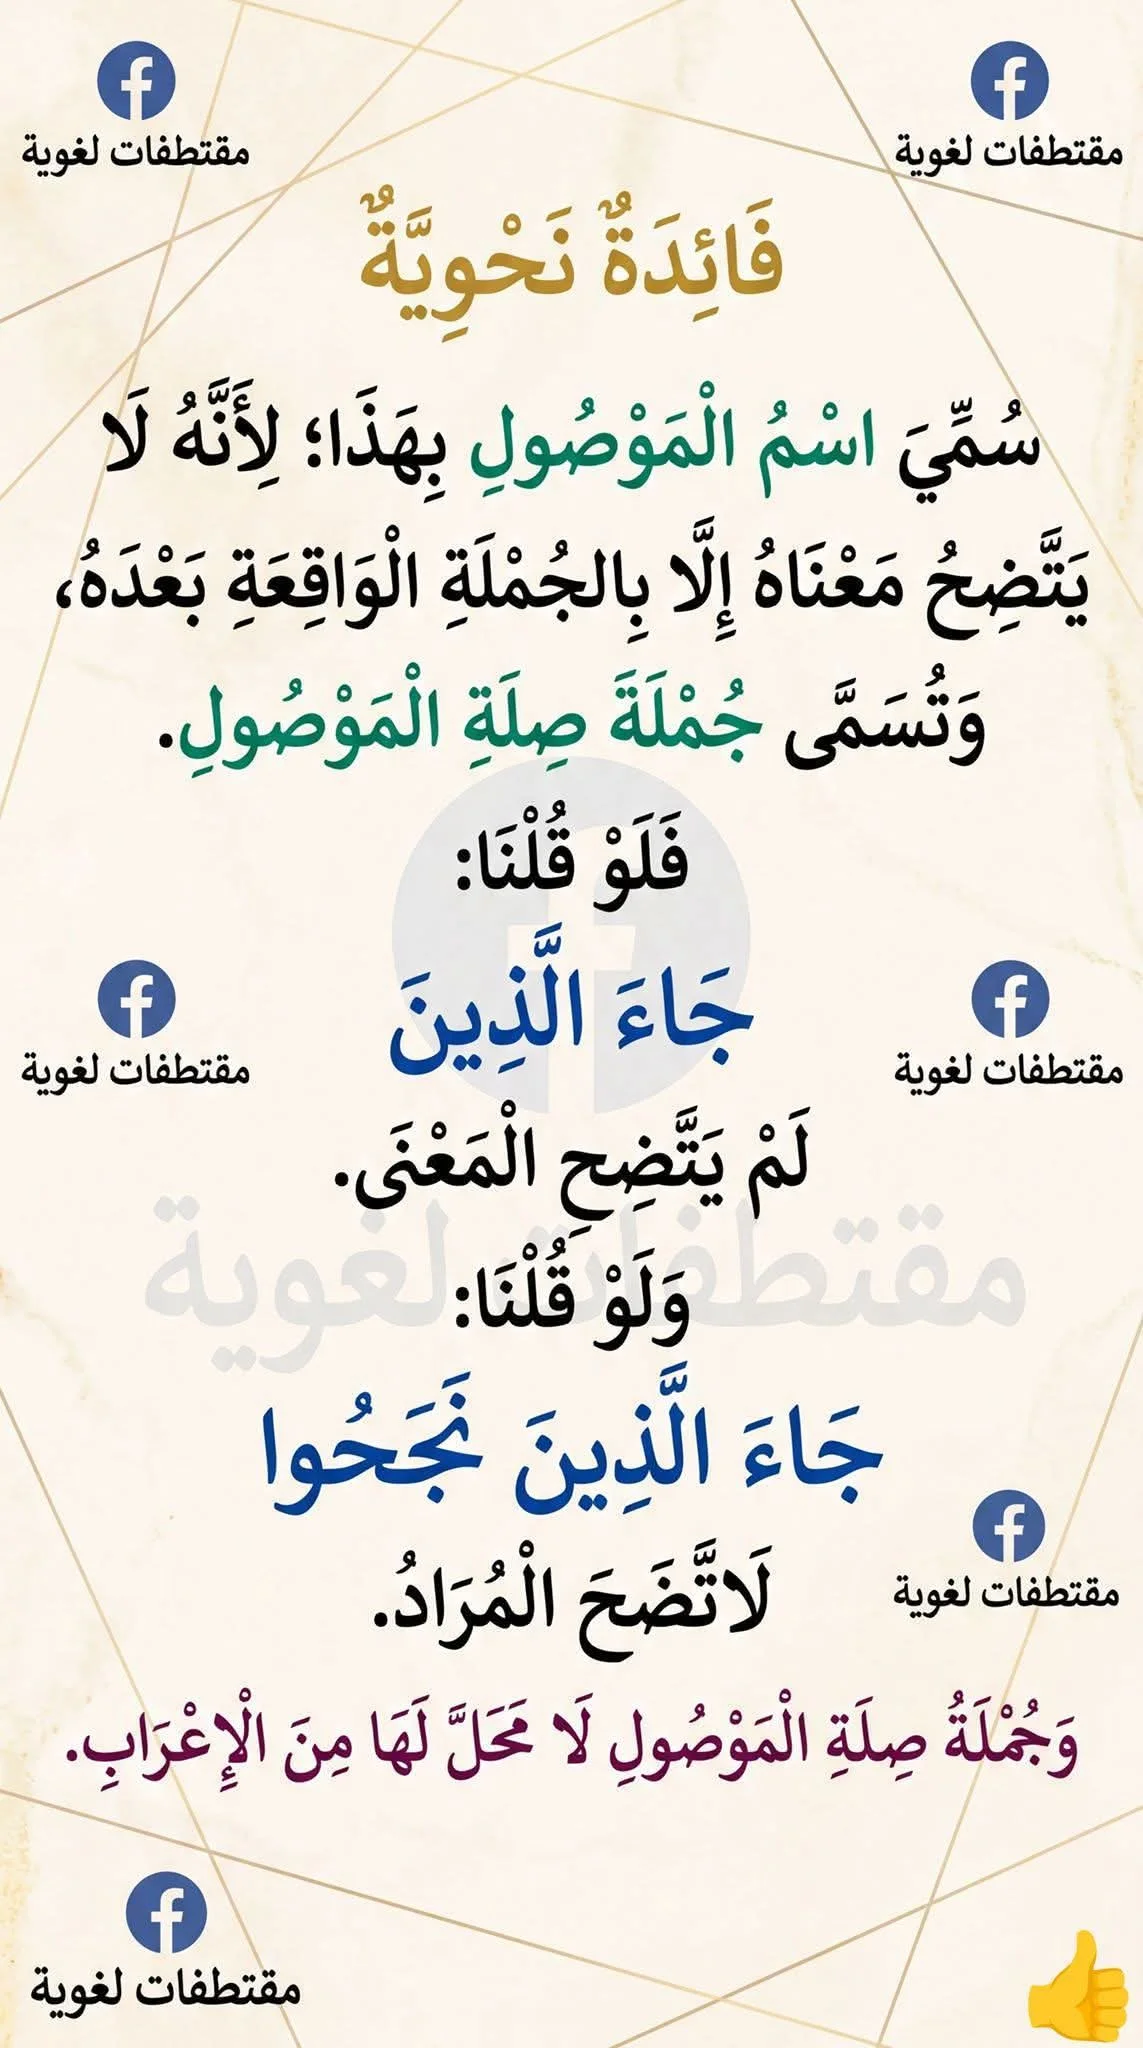 مقتطفات لغوية
مقتطفات لغوية
فَائِدَةٌ نَحْوِيَّةٌ
سُمِّيَ اسْمُ الْمَوْصُولِ بِهَذَا؛ لِأَنَّهُ لَا
يَتَّضِحُ مَعْنَاهُ إِلَّا بِالجُمْلَةِ الْوَاقِعَةِ بَعْدَهُ،
وَتُسَمَّى جُمْلَةَ صِلَةِ الْمَوْصُولِ.
فَلَوْ قُلْنَا:
جَاءَ الَّذِينَ
مقتطفات لغوية
مقتطفات لغوية
لَمْ يَتَّضِحِ الْمَعْنَى.
مقتطفات لغوية
وَلَوْ قُلْنَا:
جَاءَ الَّذِينَ نَجَحُوا
لَاتَّضَحَ الْمُرَادُ.
مقتطفات لغوية
وَجُمْلَةُ صِلَةِ الْمَوْصُولِ لَا مَحَلَّ لَهَا مِنَ الْإِعْرَابِ.
مقتطفات لغوية